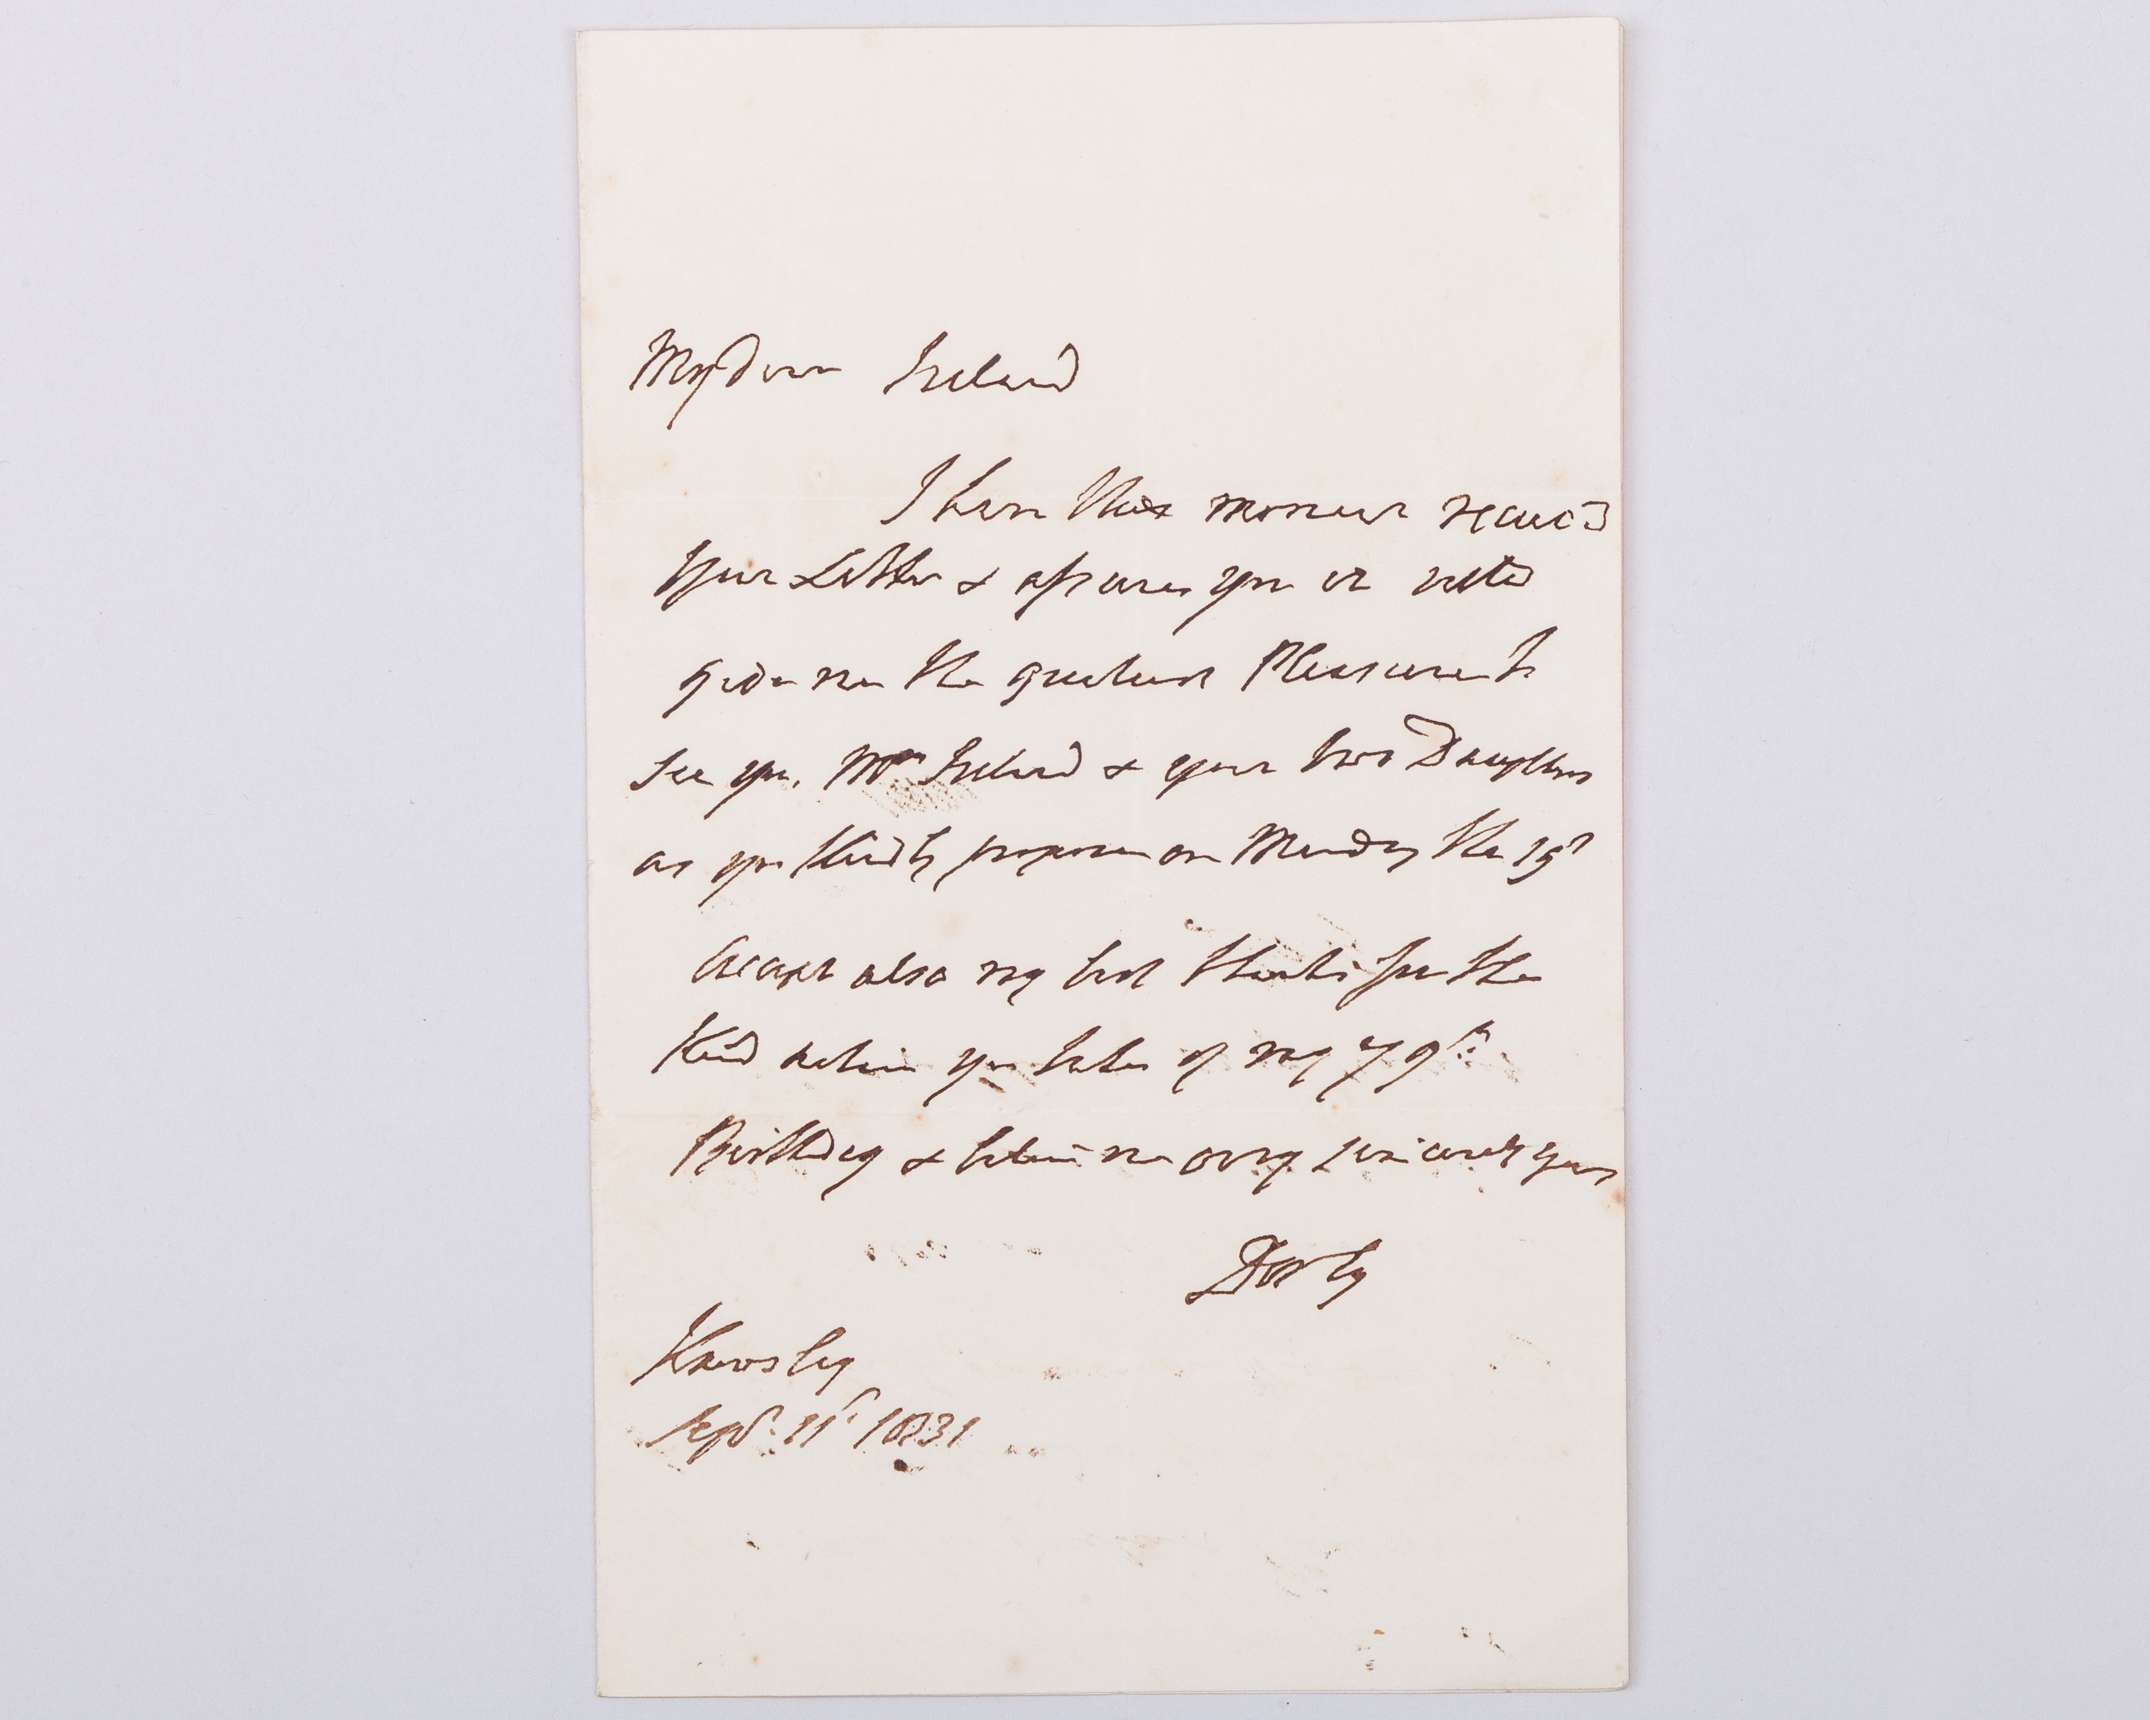 My Dear Ireland
I have this moment receiv'd
your Letter & assure you it will
give me the greatest Pleasure to
see you, Mrs Ireland & your two Daughters
as you kindly propose on Monday the 19th
Accept also my best thanks for the
Kind notice you take of my 79th:
Birthday & believe me very sincerely yours
Derby
Knowsley
Sepr. 11th 1831